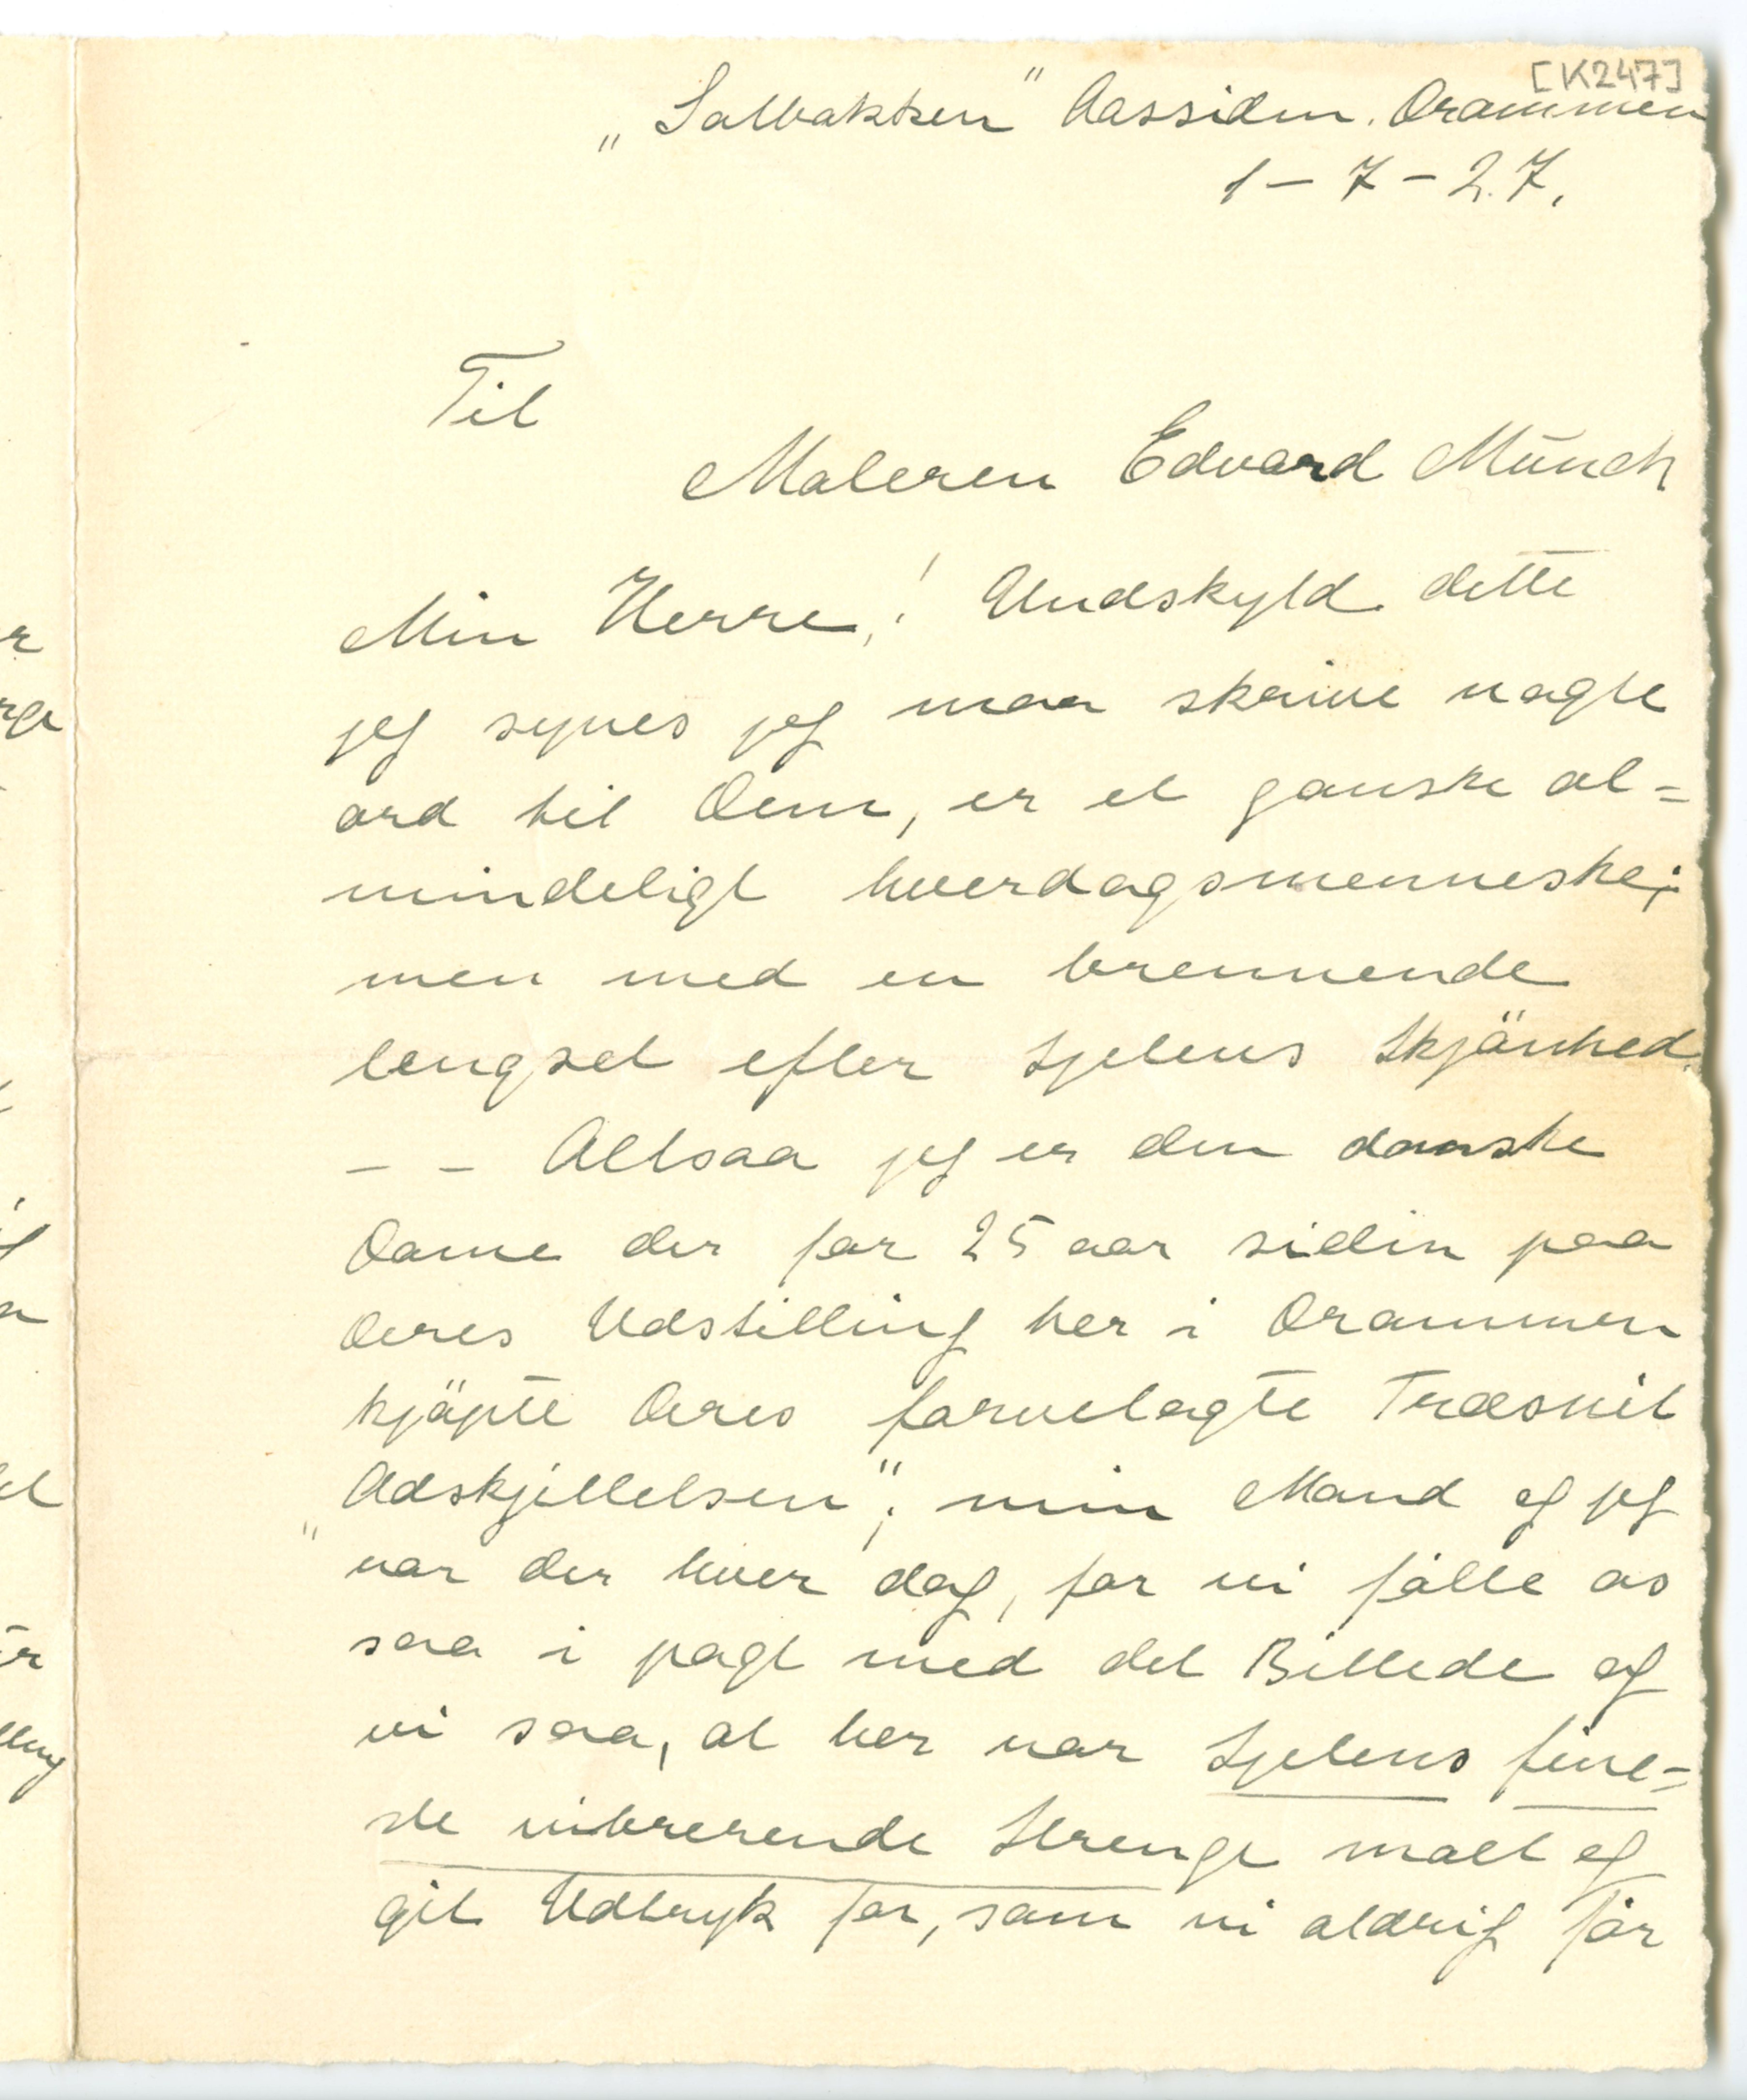 [K247]
„Solbakken" Aassiden. Drammen
1-7-27.
Til
Maleren Edvard Munch
Min Herre! Undskyld dette
jeg synes jeg maa skrive nogle
ord til Dem, er et ganske al=
mindeligt hverdagsmenneske;
men med en brennende
lengsel efter Sjelens Skjönhed.
– – Altsaa jeg er den danske
Dame der for 25 aar siden paa
Deres Udstilling her i Drammen
kjöpte Deres farvelagte Træsnit
„Adskjillelsen"; min Mand og jeg
var der hver dag, for vi fölte os
saa i pagt med det Billede og
vi saa, at her var Sjelens fine-
ste vibrerende Strenge malt og
git Udtryk for, som vi aldrig för